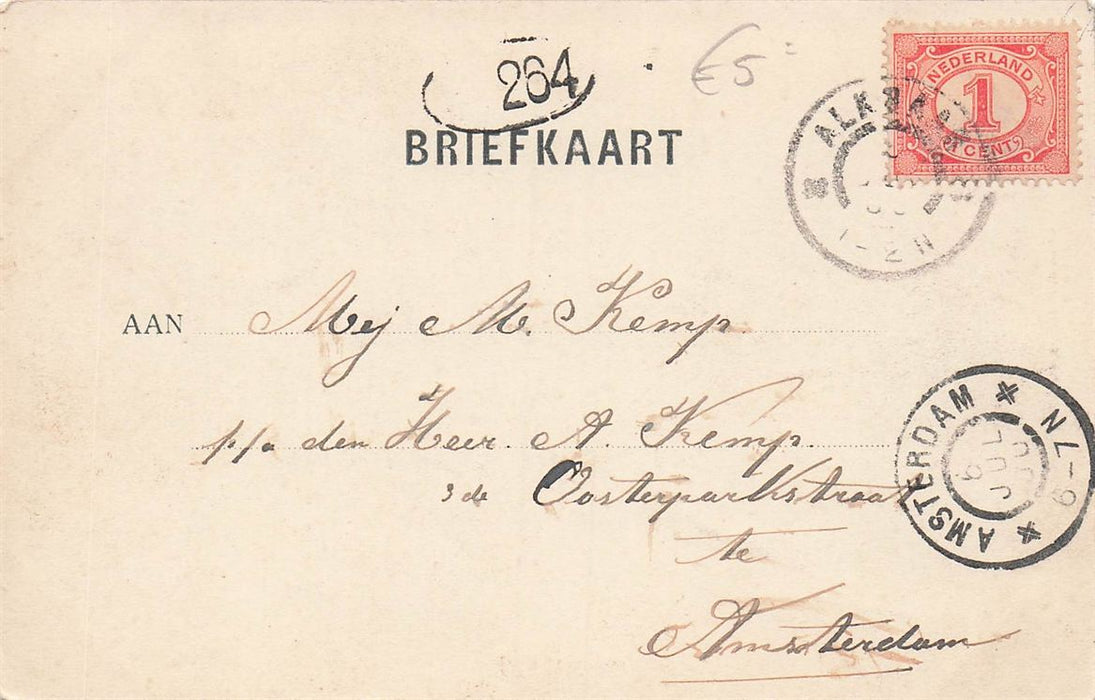 264
€5
BRIEFKAART
NEDERLAND
1
CENT
2-3N
AAN Mej M. Kemp
p/a den Heer A. Kemp.
3de Oosterparkstraat
te
Amsterdam
AMSTERDAM
6-7N
9
JUL